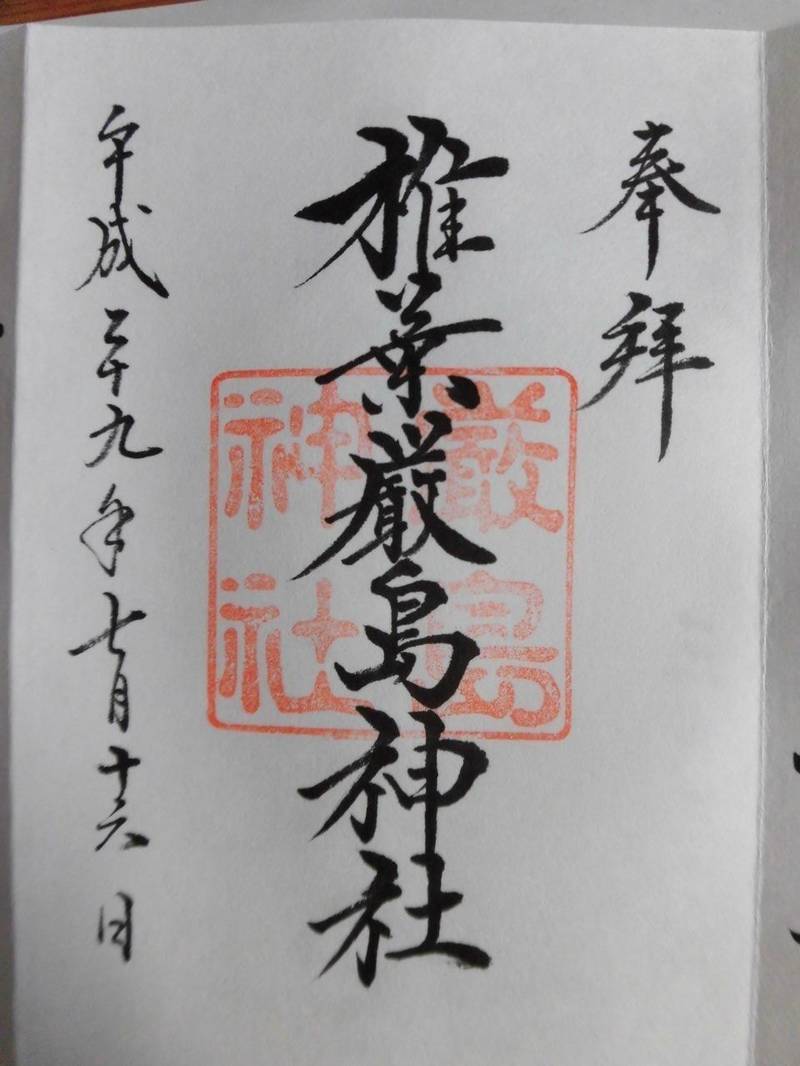 奉拝
推葉厳島神社
厳島神社
平成二十九年七月十六日